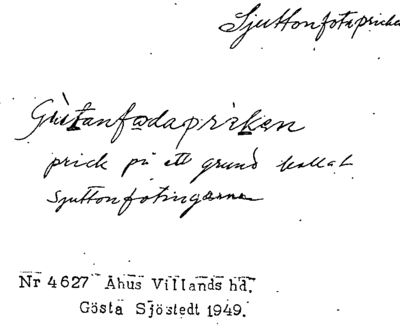 Sjuttonfotapricka
prick på ett grund kallat
Sjuttonfotingarna
Nr 4627 Åhus Villands hd.
Gösta Sjöstedt 1949.